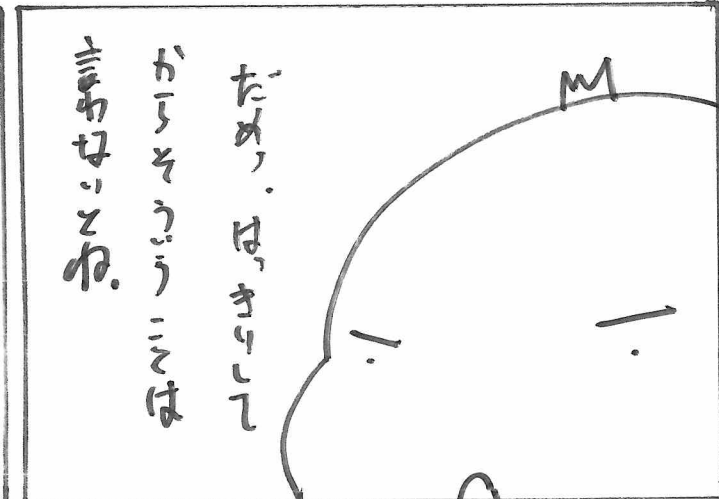 だめっ。はっきりして
からそういうことは
言わないとね。